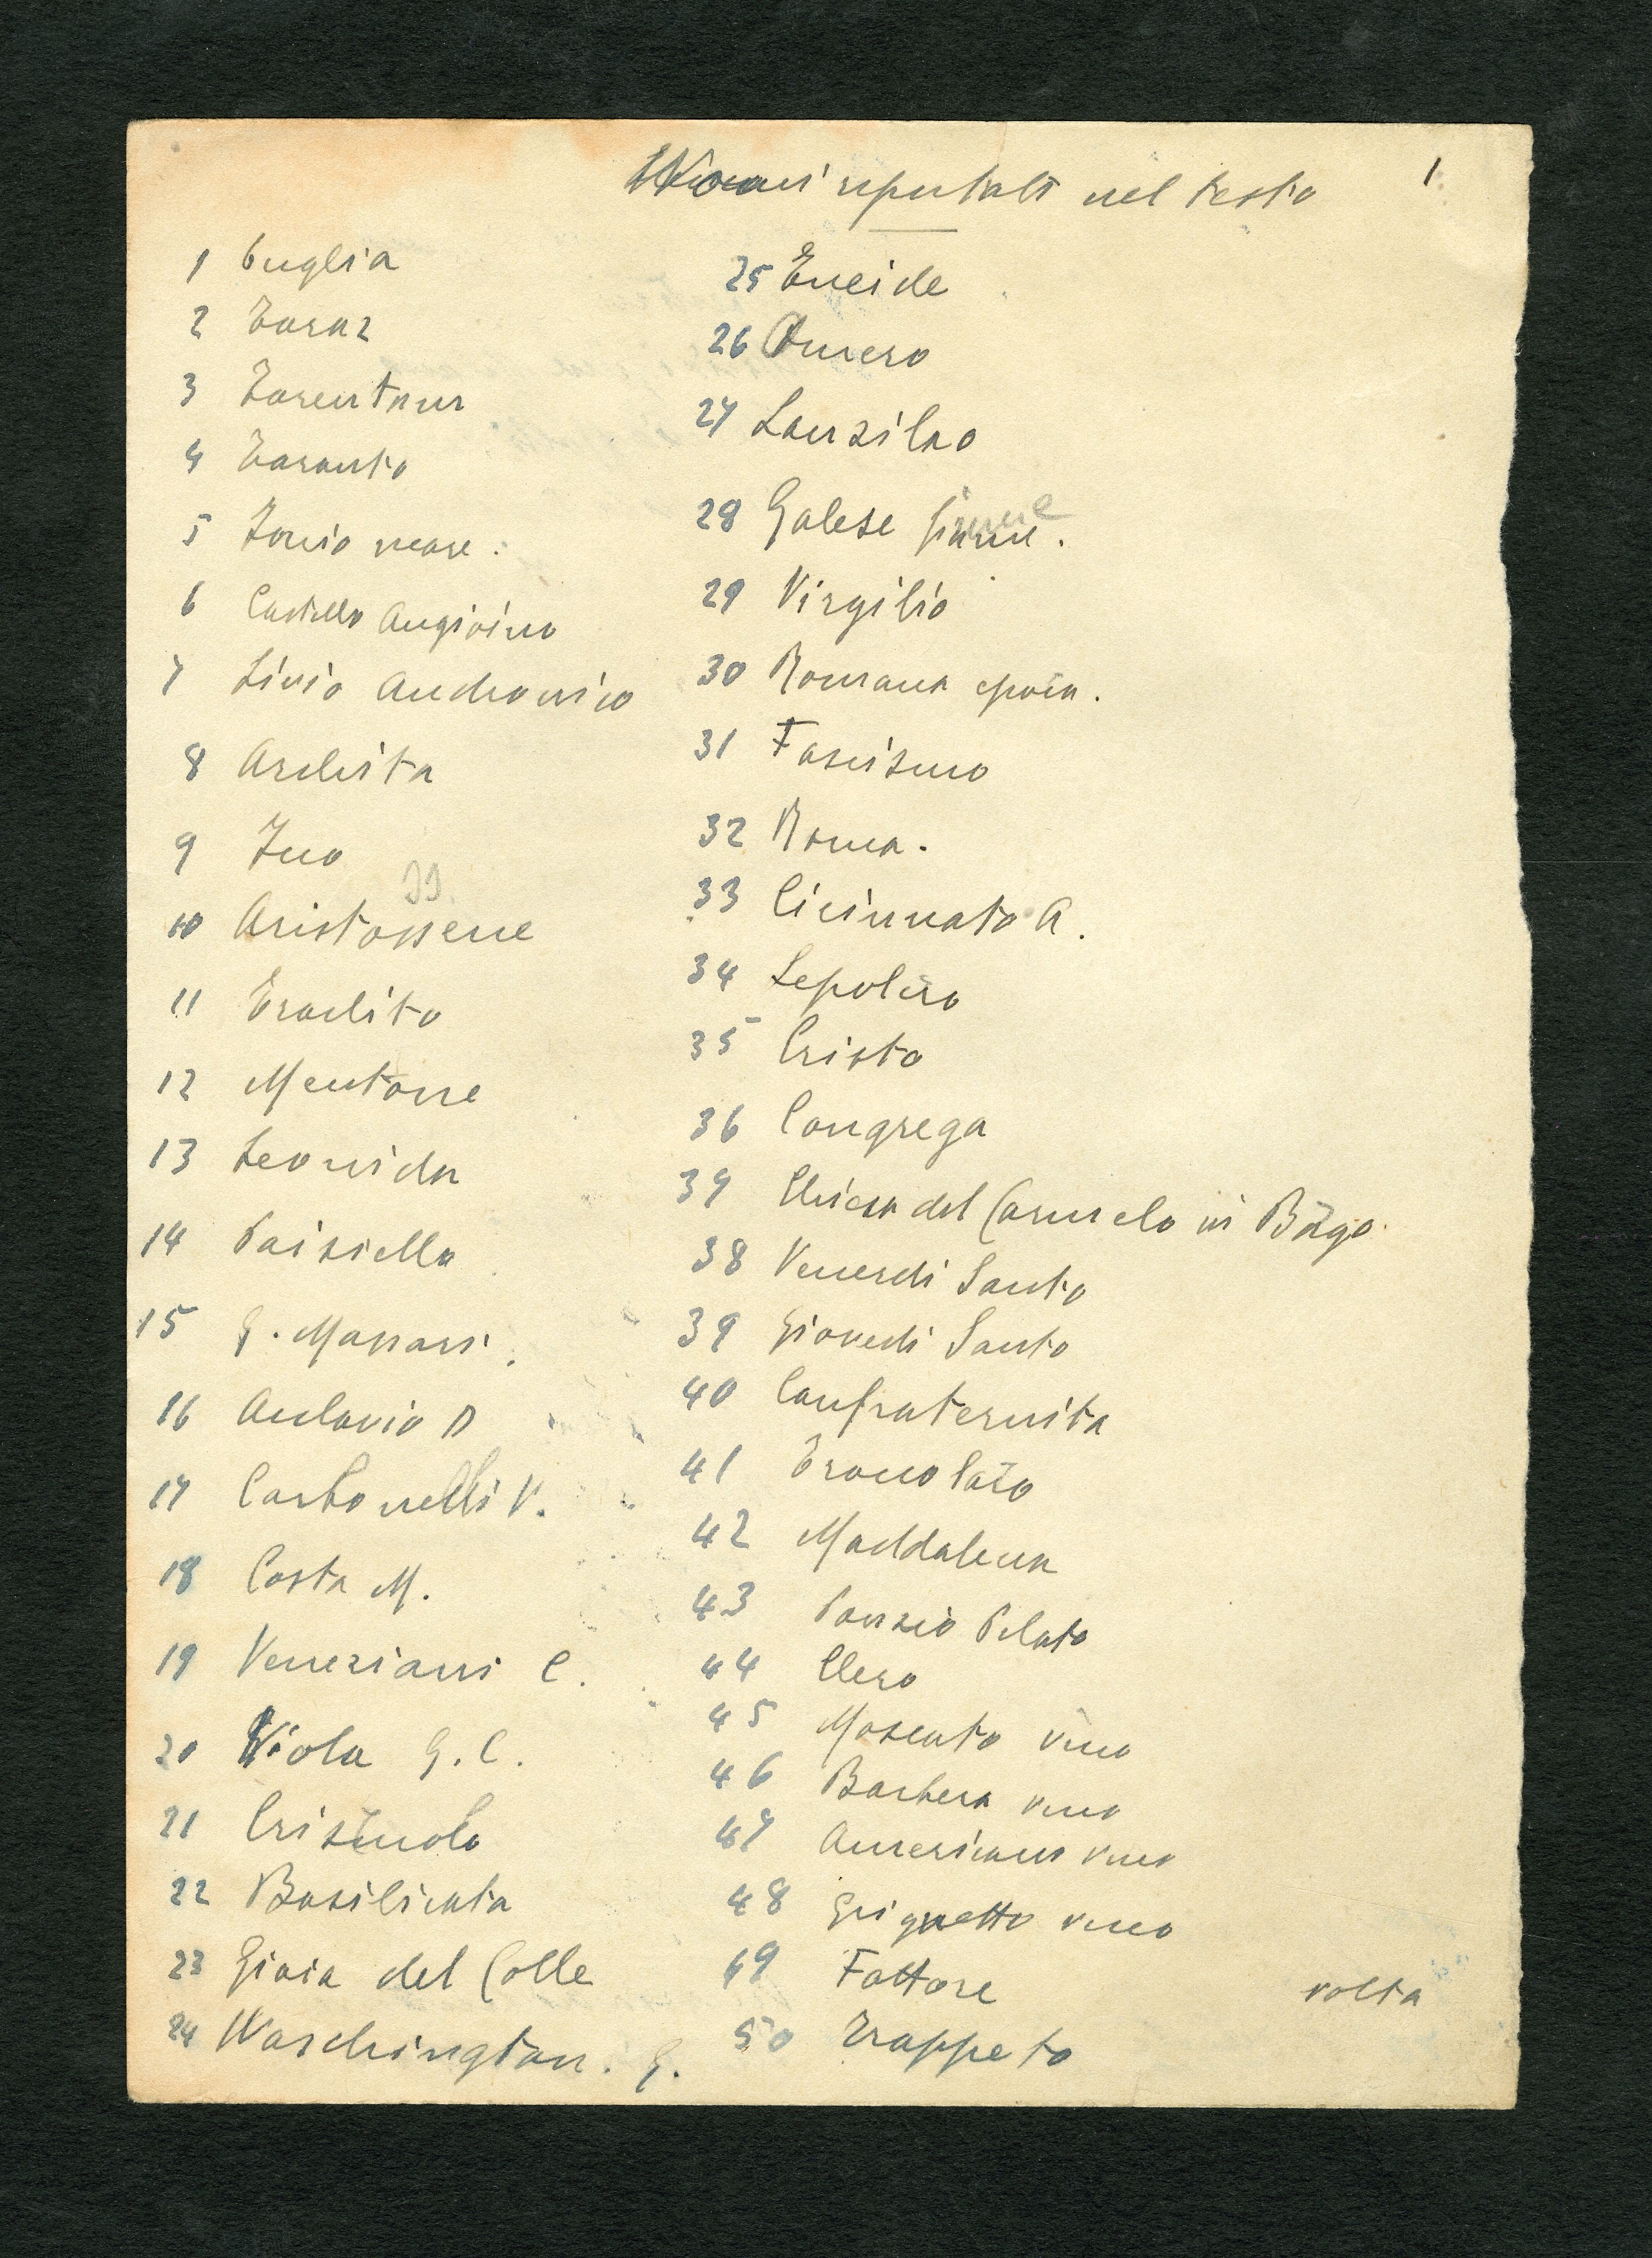 nel testo
1
1 Puglia
2 Taraz
3 Tarentum
4 Taranto
5 Jonio mare.
6 Castello Angioino
7 Livio Andronico
8 Archita
9 Ino
10 Aristossene
11 Eraclito
12 Mentore
13 Leonida
14 Paisiello
15 G. Massari.
16 Aclavio D
17 Carbonelli V.
18 Costa M.
19 Veneziani C.
20 Viola G. C.
21
22 Basilicata
23 Gioia del Colle
24 Waschington. G.
25 Eneide
26 Omero
27 Lanzilao
28 Galese fiume.
29 Virgilio
30 Romana epoca.
31 Fascismo
32 Roma.
33 Cicinnato A.
34 Sepolcro
35 Cristo
36 Congrega
37 Chiesa del Carmelo in
38 Venerdi Santo
39 Giovedi Santo
40 Confraternita
41
42 Maddalena
43 Ponzio Pilato
44 Clero
45 Moscato vino
46 Barbera vino
47 Americano vino
48 vino
49 Fattore
50 Trappeto
volta